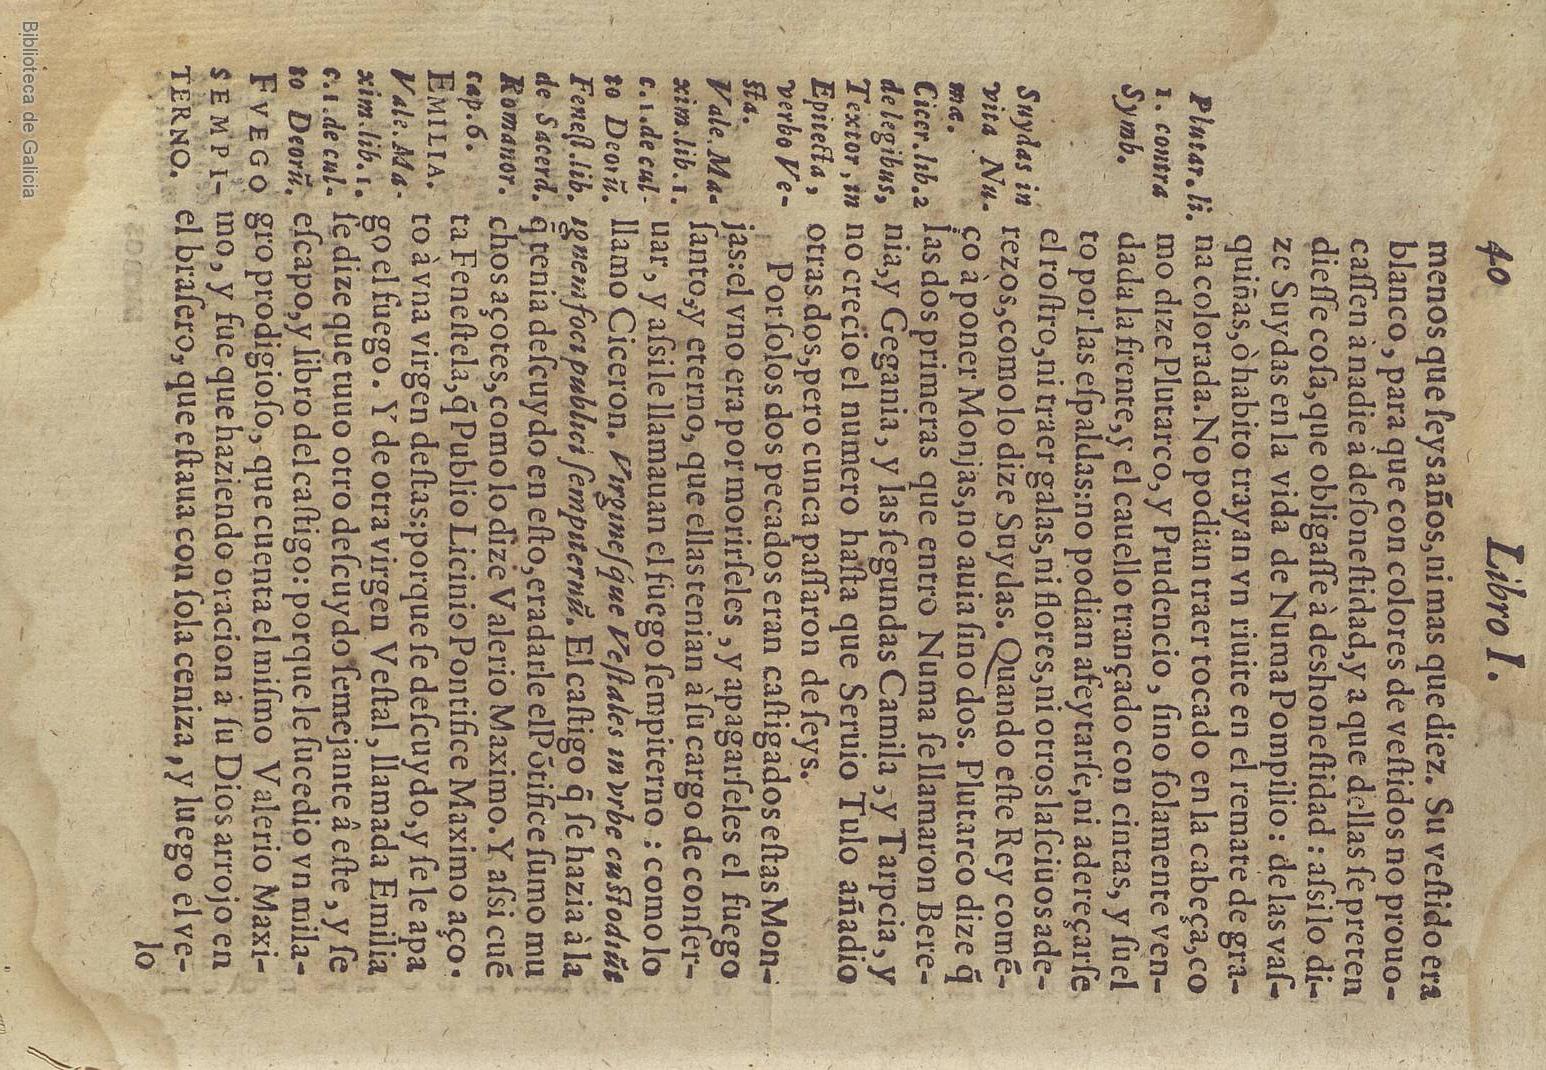 40 Libro I.
menos que ſeys años, ni mas que diez. Su veſtido era
blanco, para que con colores de veſtidos no prouo-
caſſen à nadie a deſoneſtidad, y a que dellas ſe preten
dieſſe coſa, que obligaſſe à deshoneſtidad: aſsi lo di-
ze Suydas en la vida de Numa Pompilio: de las vaſ-
quiñas, ò habito trayan vn riuite en el remate de gra-
na colorada. No podian traer tocado en la cabeça, co
mo dize Plutarco, y Prudencio, ſino ſolamente ven-
dada la frente, y el cauello trançado con cintas, y ſuel
to por las eſpaldas: no podian afeytarſe, ni adereçarſe
el roſtro, ni traer galas, ni flores, ni otros laſciuos ade-
rezos, como lo dize Suydas. Quando eſte Rey comẽ-
ço à poner Monjas, no auia ſino dos. Plutarco dize q̃
las dos primeras que entro Numa ſe llamaron Bere-
nia, y Gegania, y las ſegundas Camila, y Tarpcia, y
no crecio el numero haſta que Seruio Tulo añadio
otras dos, pero cunca paſſaron de ſeys.
Por ſolos dos pecados eran caſtigados eſtas Mon-
jas: el vno era por morirſeles, y apagarſeles el fuego
ſanto, y eterno, que ellas tenian à ſu cargo de conſer-
uar, y aſsi le llamauan el fuego ſempiterno: como lo
llamo Ciceron. Virgineſque Veſtales in vrbe cuſtodiũt
ignem foci publici ſempiternũ. El caſtigo q̃ ſe hazia à la
q̃ tenia deſcuydo en eſto, era darle el Põtifice ſumo mu
chos açotes, como lo dize Valerio Maximo. Y aſsi cuẽ
ta Feneſtela, q̃ Publio Licinio Pontifice Maximo aço-
to à vna virgen deſtas: porque ſe deſcuydo, y ſe le apa
go el fuego. Y de otra virgen Veſtal, llamada Emilia
ſe dize que tuuo otro deſcuydo ſemejante â eſte, y ſe
eſcapo, y libro del caſtigo: porque le ſucedio vn mila-
gro prodigioſo, que cuenta el miſmo Valerio Maxi-
mo, y fue que haziendo oracion à ſu Dios arrojo en
el braſero, que eſtaua con ſola ceniza, y luego el ve-
lo
Plutar. li.
1. contra
Symb.
Suydas in
vita Nu-
mæ.
Cicer. lib. 2
de legibus,
Textor, in
Epitecta,
verbo Ve-
ſta.
Vale. Ma-
xim. lib. 1.
c. 1. de cul-
to Deorũ.
Feneſt. lib.
de Sacerd.
Romanor.
cap. 6.
EMILIA.
Vale. Ma-
xim. lib. 1.
c. 1. de cul-
to Deorũ.
FVEGO
SEMPI-
TERNO.
Biblioteca de Galicia